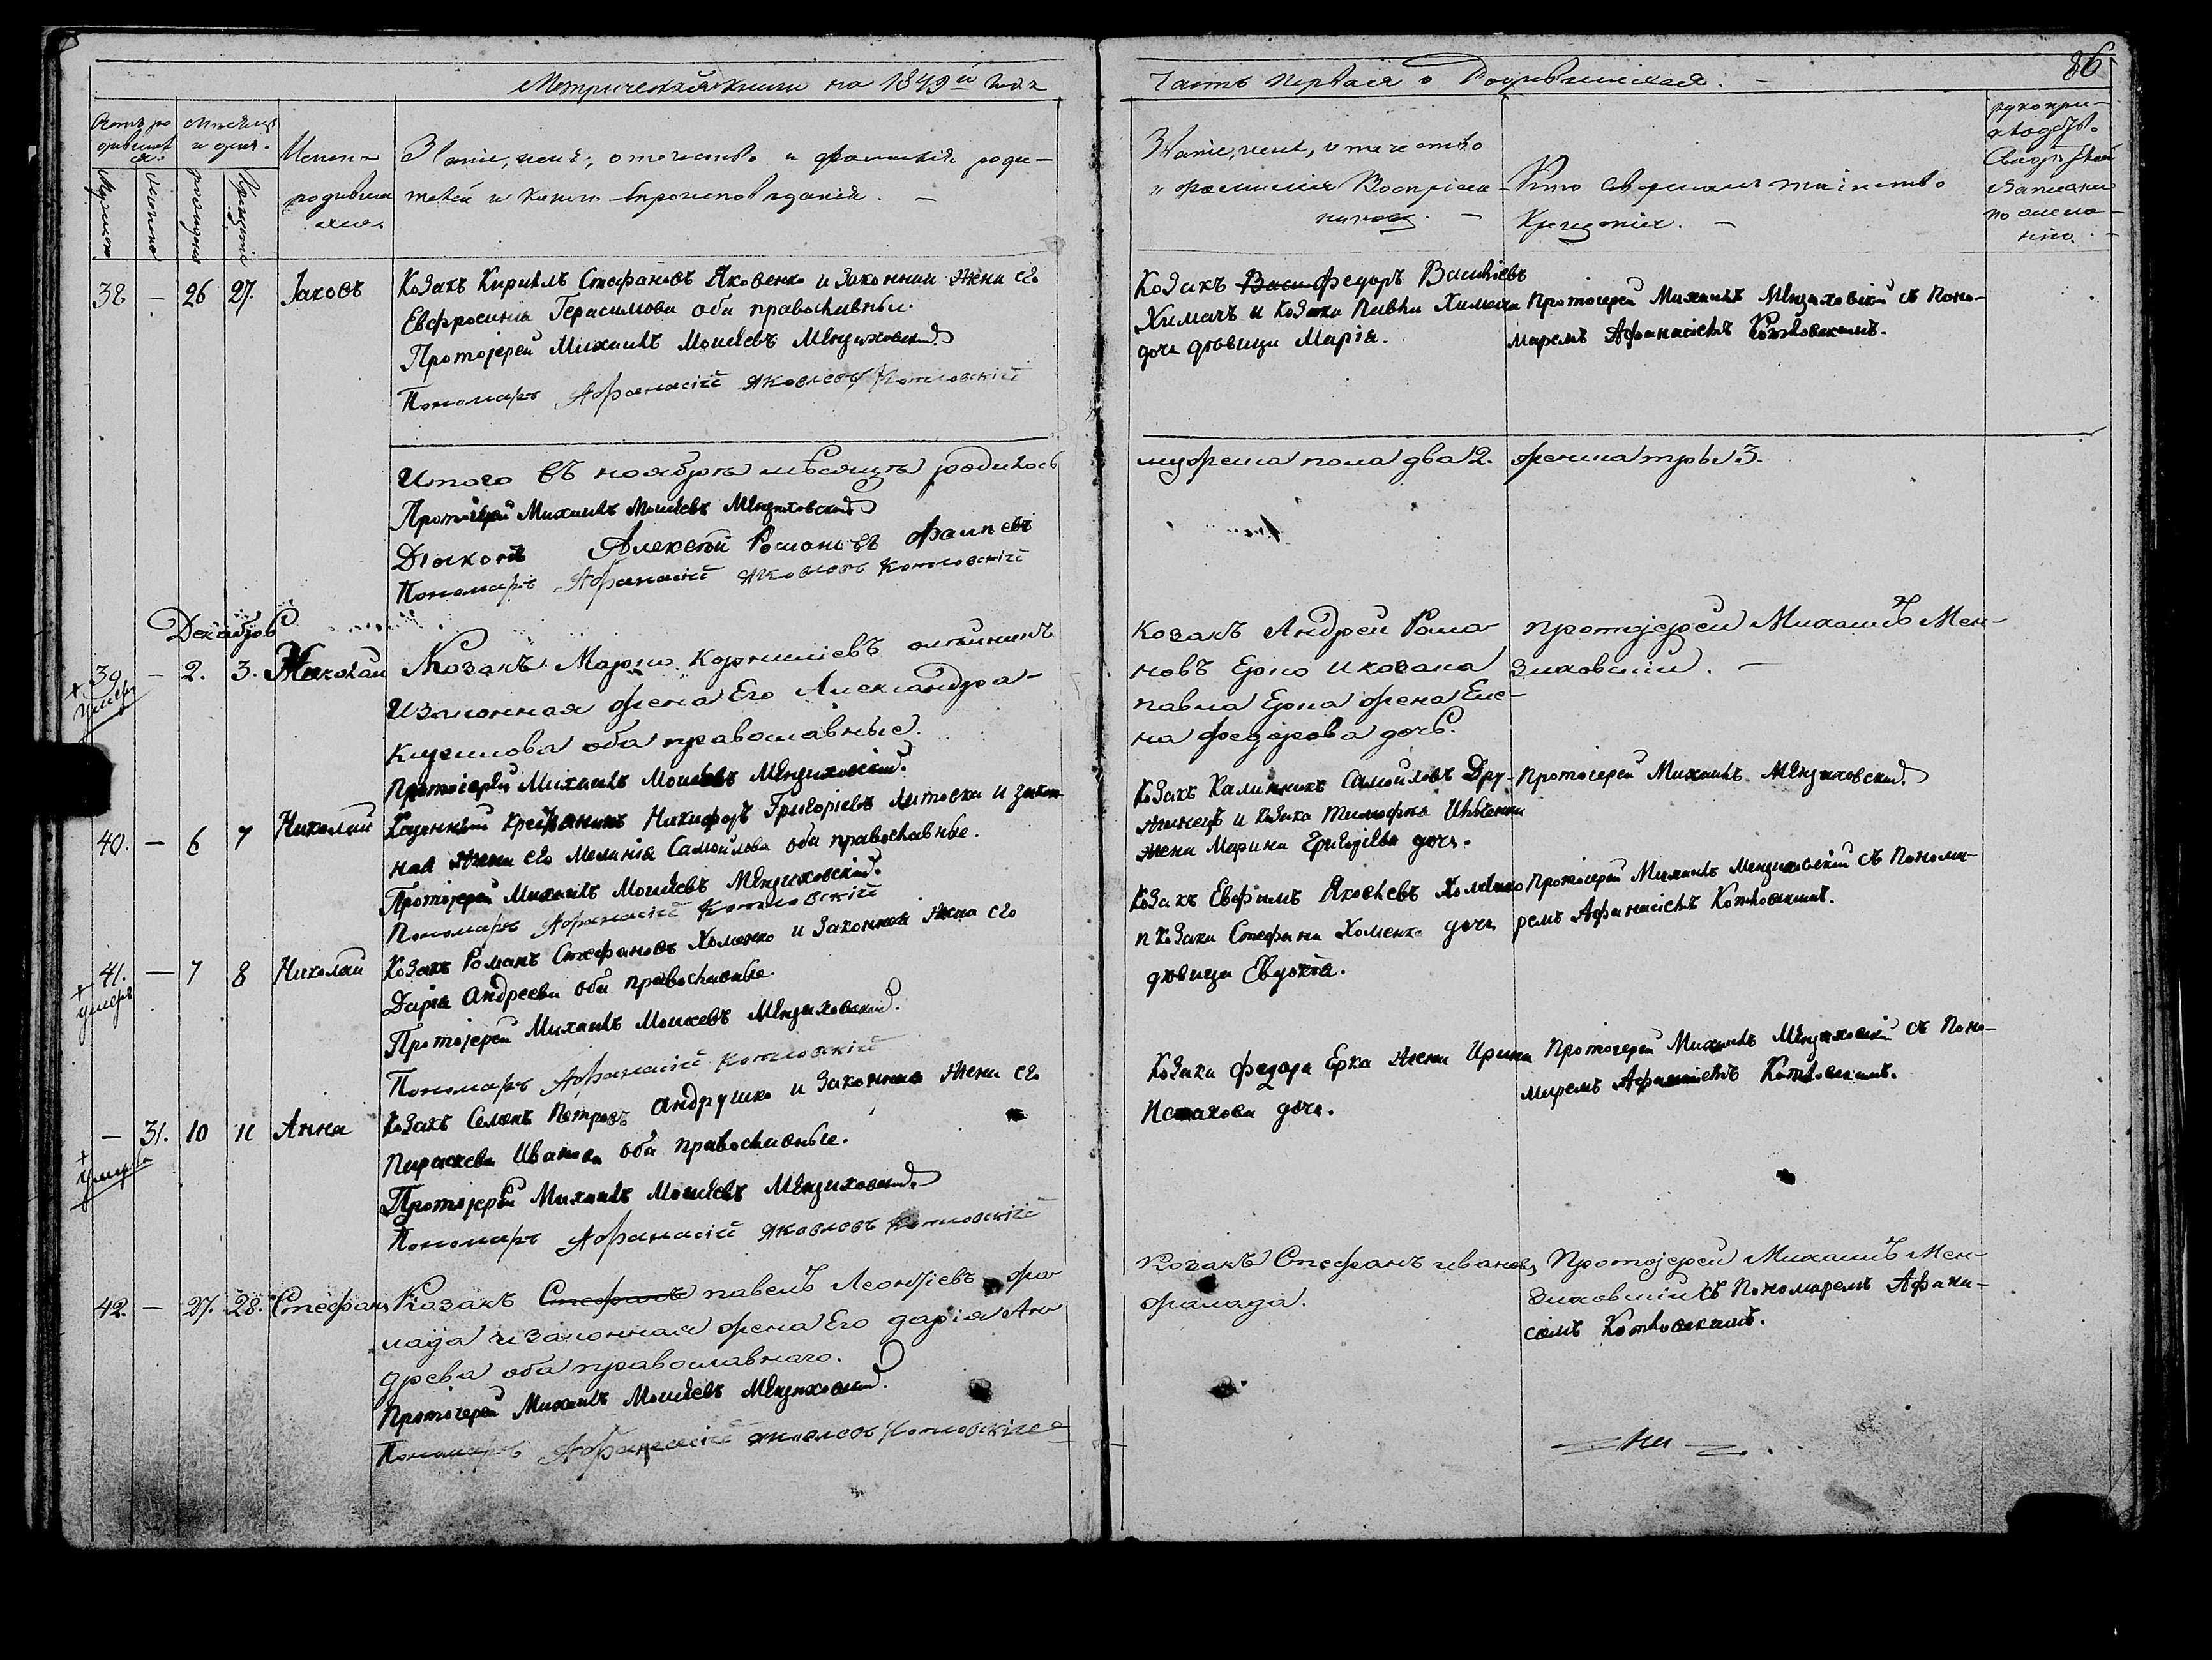 Метрической книги на 1849й годъ
Часть первая о родившихся.
86
Счетъ родившихся.
Мѣсяцъ и день.
Мужеска
Женска
рожденія
Крещенія
Имена родившихся.
Званіе, имя, отечество и фамилія роди-
телей и какого вѣроисповѣданія.
Званіе, имя, отечество
и фамилія Воспріем-
никовъ.
Кто совершалъ таинство
Крещенія.
рукопри-
кладство
свидѣтелей
записки
по жела-
нію.
38 – 26 27. Іаковъ
Козакъ Кирилъ Стефановъ Яковенко и законная жена его
Евфросинія Герасимова оба православные.
Протоіерей Михаилъ Моисеевъ Мензиховскій
Пономарь Афанасій Яковлевъ Котловскій
Козакъ Васи Федоръ Василіевъ
Химачъ и козака Павла Химача
дочь дѣвица Марія.
Протоіерей Михаилъ Мензиховскій съ Поно-
маремъ Афанасіемъ Котловскимъ.
Итого въ ноябрѣ мѣсяцѣ родилось
мужеска пола два 2. женска три 3.
Протоіерей Михаилъ Моисеевъ Мензиховскій
Діаконъ Алексѣй Романовъ
Пономарь Афанасій Яковлевъ Котловскій
Декабрь
39 – 2. 3. Николай
умеръ
Козакъ Марко Корниліевъ
И законная жена Его Александра
оба православные.
Протоіерей Михаилъ Моисеевъ Мензиховскій.
Козакъ Андрей Рома-
новъ Ерко и козака
павла Ерка жена Еле-
на федорова дочь.
Протоіерей Михаилъ Мен-
зиховскій.
40. – 6 7 Николай
Казенный крестьянинъ Никифоръ Григоріевъ Литовка и закон-
ная жена его Меланія Самойлова оба православные.
Протоіерей Михаилъ Моисеевъ Мензиховскій.
Пономарь Афанасій Котловскій
Козакъ Калинникъ Самойловъ Дру-
и козака Тимофея
жена Марина Григоріева дочь.
Протоіерей Михаилъ Мензиховскій
41. – 7 8 Николай
умеръ
Козакъ Романъ Стефановъ Хоменко и законная жена его
Дарія Андреева оба православные.
Протоіерей Михаилъ Моисеевъ Мензиховскій.
Пономарь Афанасій Котловскій
Козакъ Евфимъ Яковлевъ Хоменко
и козака Стефана Хоменка дочь
дѣвица Евдокія.
Протоіерей Михаилъ Мензиховскій съ Понома-
ремъ Афанасіемъ Котловскимъ.
– 31. 10 11 Анна
умерла
Козакъ Семенъ Петровъ Андрушко и законная жена его
Параскева Иванова оба православные.
Протоіерей Михаилъ Моисеевъ Мензиховскій
Пономарь Афанасій Яковлевъ Котловскій
Козака Федора Ерка жена Ирина
дочь.
Протоіерей Михаилъ Мензиховскій съ Поно-
маремъ Афанасіемъ Котловскимъ.
42. – 27. 28. Стефанъ
Козакъ Стефанъ павелъ Леонтіевъ фа-
лада и законная жена Его дарія Ан-
дреева оба православнаго.
Протоіерей Михаилъ Моисеевъ Мензиховскій.
Пономарь Афанасій Яковлевъ Котловскій
Козакъ Стефанъ ивановъ
фалада.
Протоіерей Михаилъ Мен-
зиховскій съ Пономаремъ Афана-
сіемъ Котловскимъ.